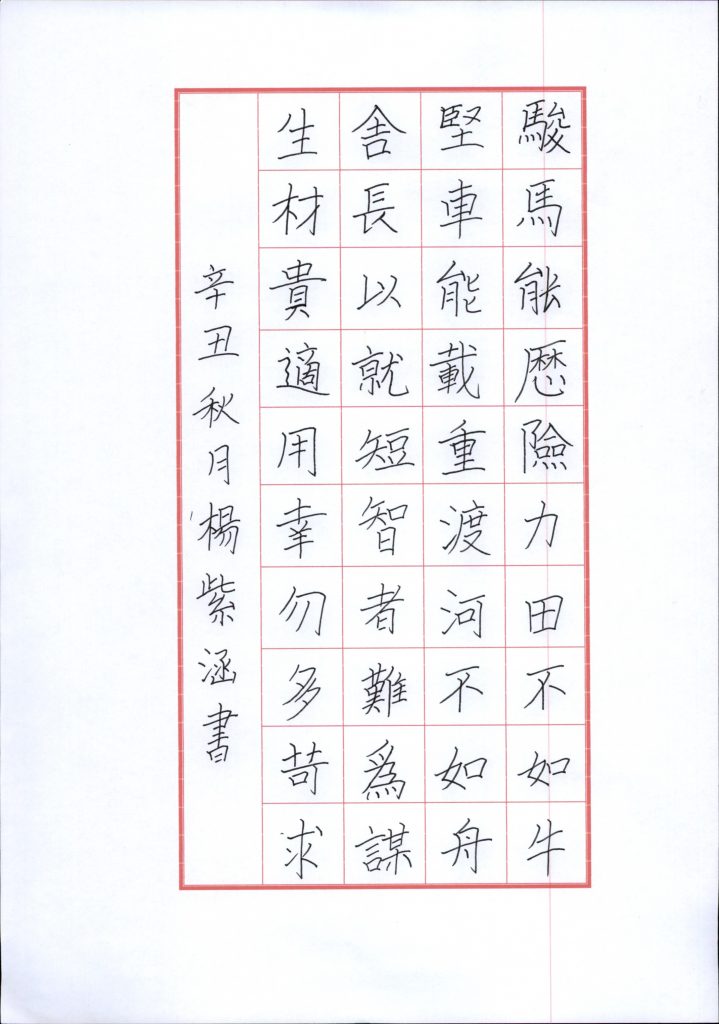 駿馬能歷險力田不如牛
堅車能載重渡河不如舟
舍長以就短智者難為謀
生材貴適用幸勿多苛求
辛丑秋月楊紫涵書